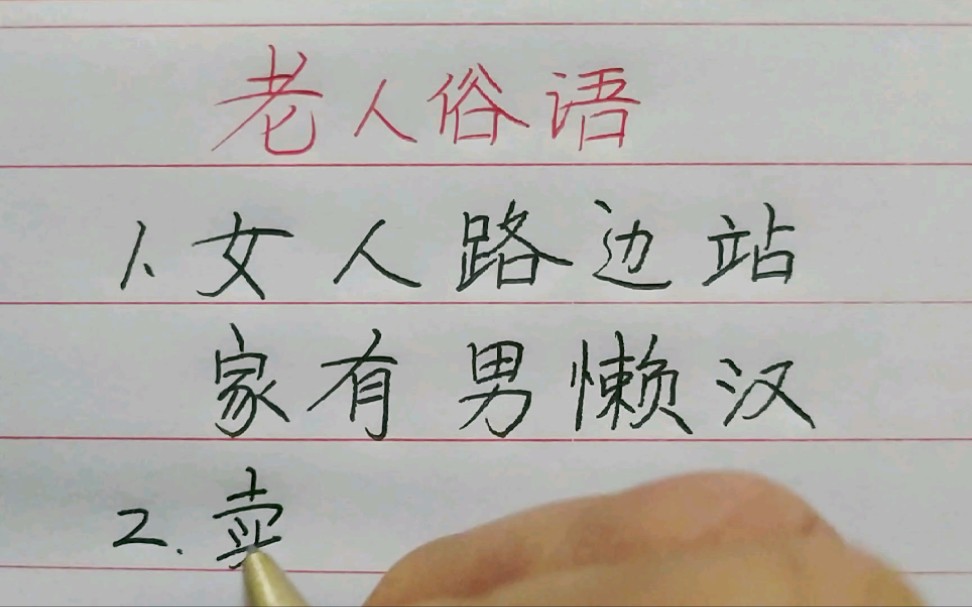 老人俗语
1、女人路边站
家有男懒汉
2.